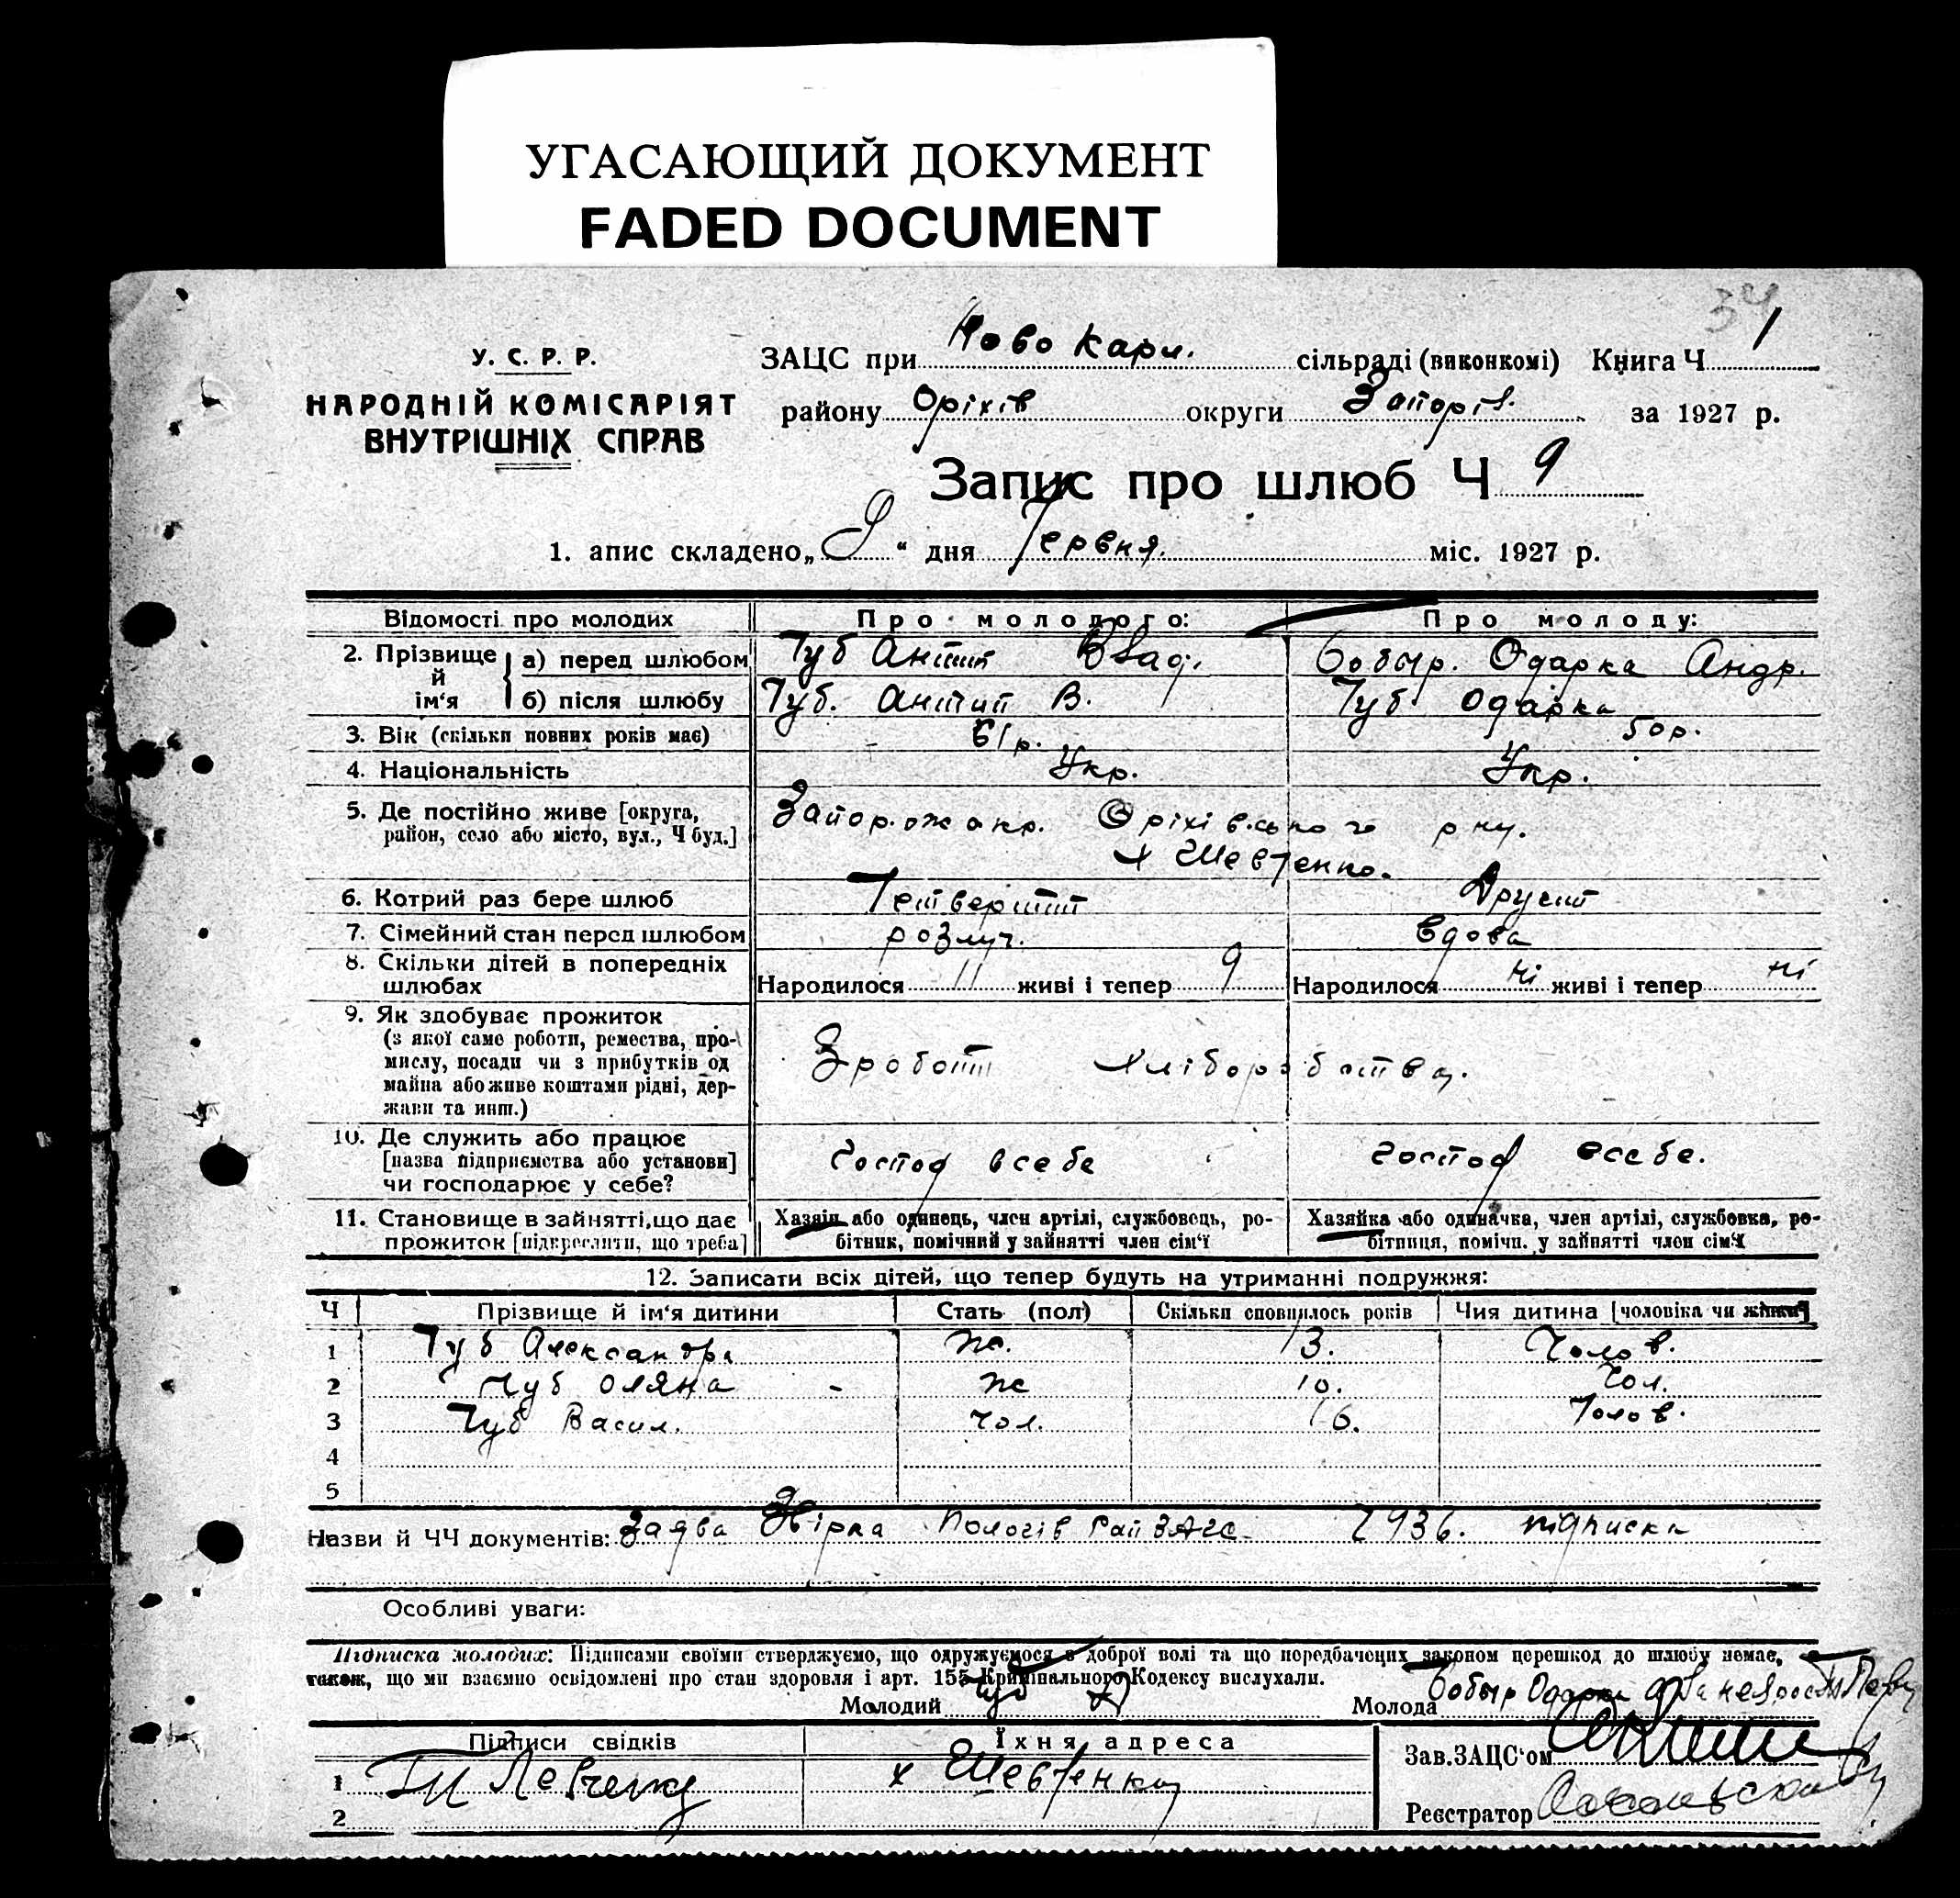 УГАСАЮЩИЙ ДОКУМЕНТ
FADED DOCUMENT
34
У. С. Р. Р.
НАРОДНІЙ КОМІСАРІЯТ
ВНУТРІШНІХ СПРАВ
ЗАЦС при Ново Карл. сільраді (виконкомі) Книга Ч 1
району Оріхів округи Запоріз. за 1927 р.
Запис про шлюб Ч 9
1. апис складено „9“ дня Червня міс. 1927 р.
Відомості про молодих
Про молодого:
Про молоду:
2. Прізвище й ім‘я
а) перед шлюбом Чуб Антип Влад. Бобыр. Одарка Андр.
б) після шлюбу Чуб. Антип В. Чуб Одарка
3. Вік (скільки повних років має) 61 р. 50 р.
4. Національність Укр. Укр.
5. Де постійно живе [округа, район, село або місто, вул., Ч буд.] Запорожокр. Оріхівського р ну.
х Шевченко.
6. Котрий раз бере шлюб Четвертит Другит
7. Сімейний стан перед шлюбом розлуч. вдова
8. Скільки дітей в попередніх шлюбах Народилося 11 живі і тепер 9 Народилося ні живі і тепер ні
9. Як здобуває прожиток
(з якої саме роботи, ремества, про-
мислу, посади чи з прибутків од
майна або живе коштами рідні, дер-
жави та инш.)
Зроботи хліборобства.
10. Де служить або працює
[назва підприємства або установи]
чи господарює у себе?
господ всебе господ всебе.
11. Становище в зайнятті, що дає
прожиток [підкреслити, що треба]
Хазяїн або одинець, член артілі, службовець, ро-
бітник, помічний у зайнятті член сім‘ї
Хазяйка або одиначка, член артілі, службовка, ро-
бітниця, помічн. у зайнятті член сім‘ї
12. Записати всіх дітей, що тепер будуть на утриманні подружжя:
Ч Прізвище й ім‘я дитини Стать (пол) Скільки сповнилось років Чия дитина [чоловіка чи жінки]
1 Чуб Александра ж. 13. Чолов.
2 Чуб Оляна ж 10. Чол.
3 Чуб Васил. чол. 16. Чолов.
4
5
Назви й ЧЧ документів: Заява Пологів рай ЗАГС. підписка
Особливі уваги:
Підписка молодих: Підписами своїми стверджуємо, що одружуємося з доброї волі та що передбачених законом перешкод до шлюбу немає, а
також, що ми взаємно освідомлені про стан здоровля і арт. 155 Кримінального Кодексу вислухали.
Молодий Чуб А Молода Бобыр Одарка
Підписи свідків Їхня адреса
1 Левченко х Шевченко
2
Зав. ЗАЦС‘ом
Реєстратор